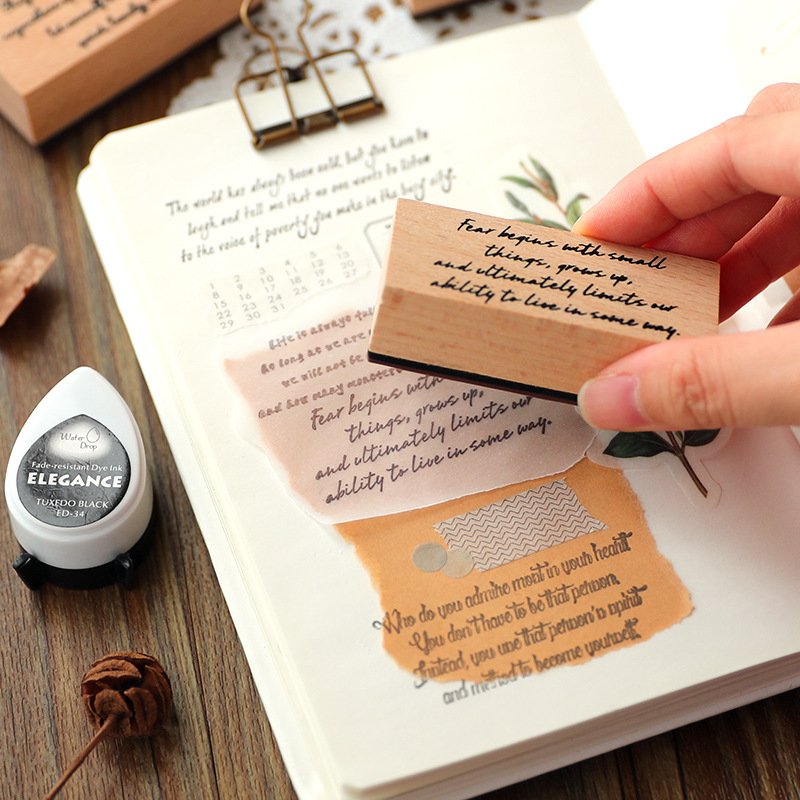 The world has always been cold, but you have to
laugh and tell me that no one wants to listen
to the voice of poverty you make in the busy city.
1 2 3 4 5 6
8 9 10 11 12 13
15 16 17 18 19 20
22 23 24 25 26 27
29 30 31
Life is always
as long as we are
we will not be
and how many monsters
Fear begins with
things, grows up,
and ultimately limits our
ability to live in some way.
Fear begins with small
things, grows up,
and ultimately limits our
ability to live in some way.
Who do you admire most in your heart
You don't have to be that person.
Instead, you use that person's spirit
and method to become yourself.
Water
Drop
Fade-resistant Dye Ink
ELEGANCE
TUXEDO BLACK
ED-34